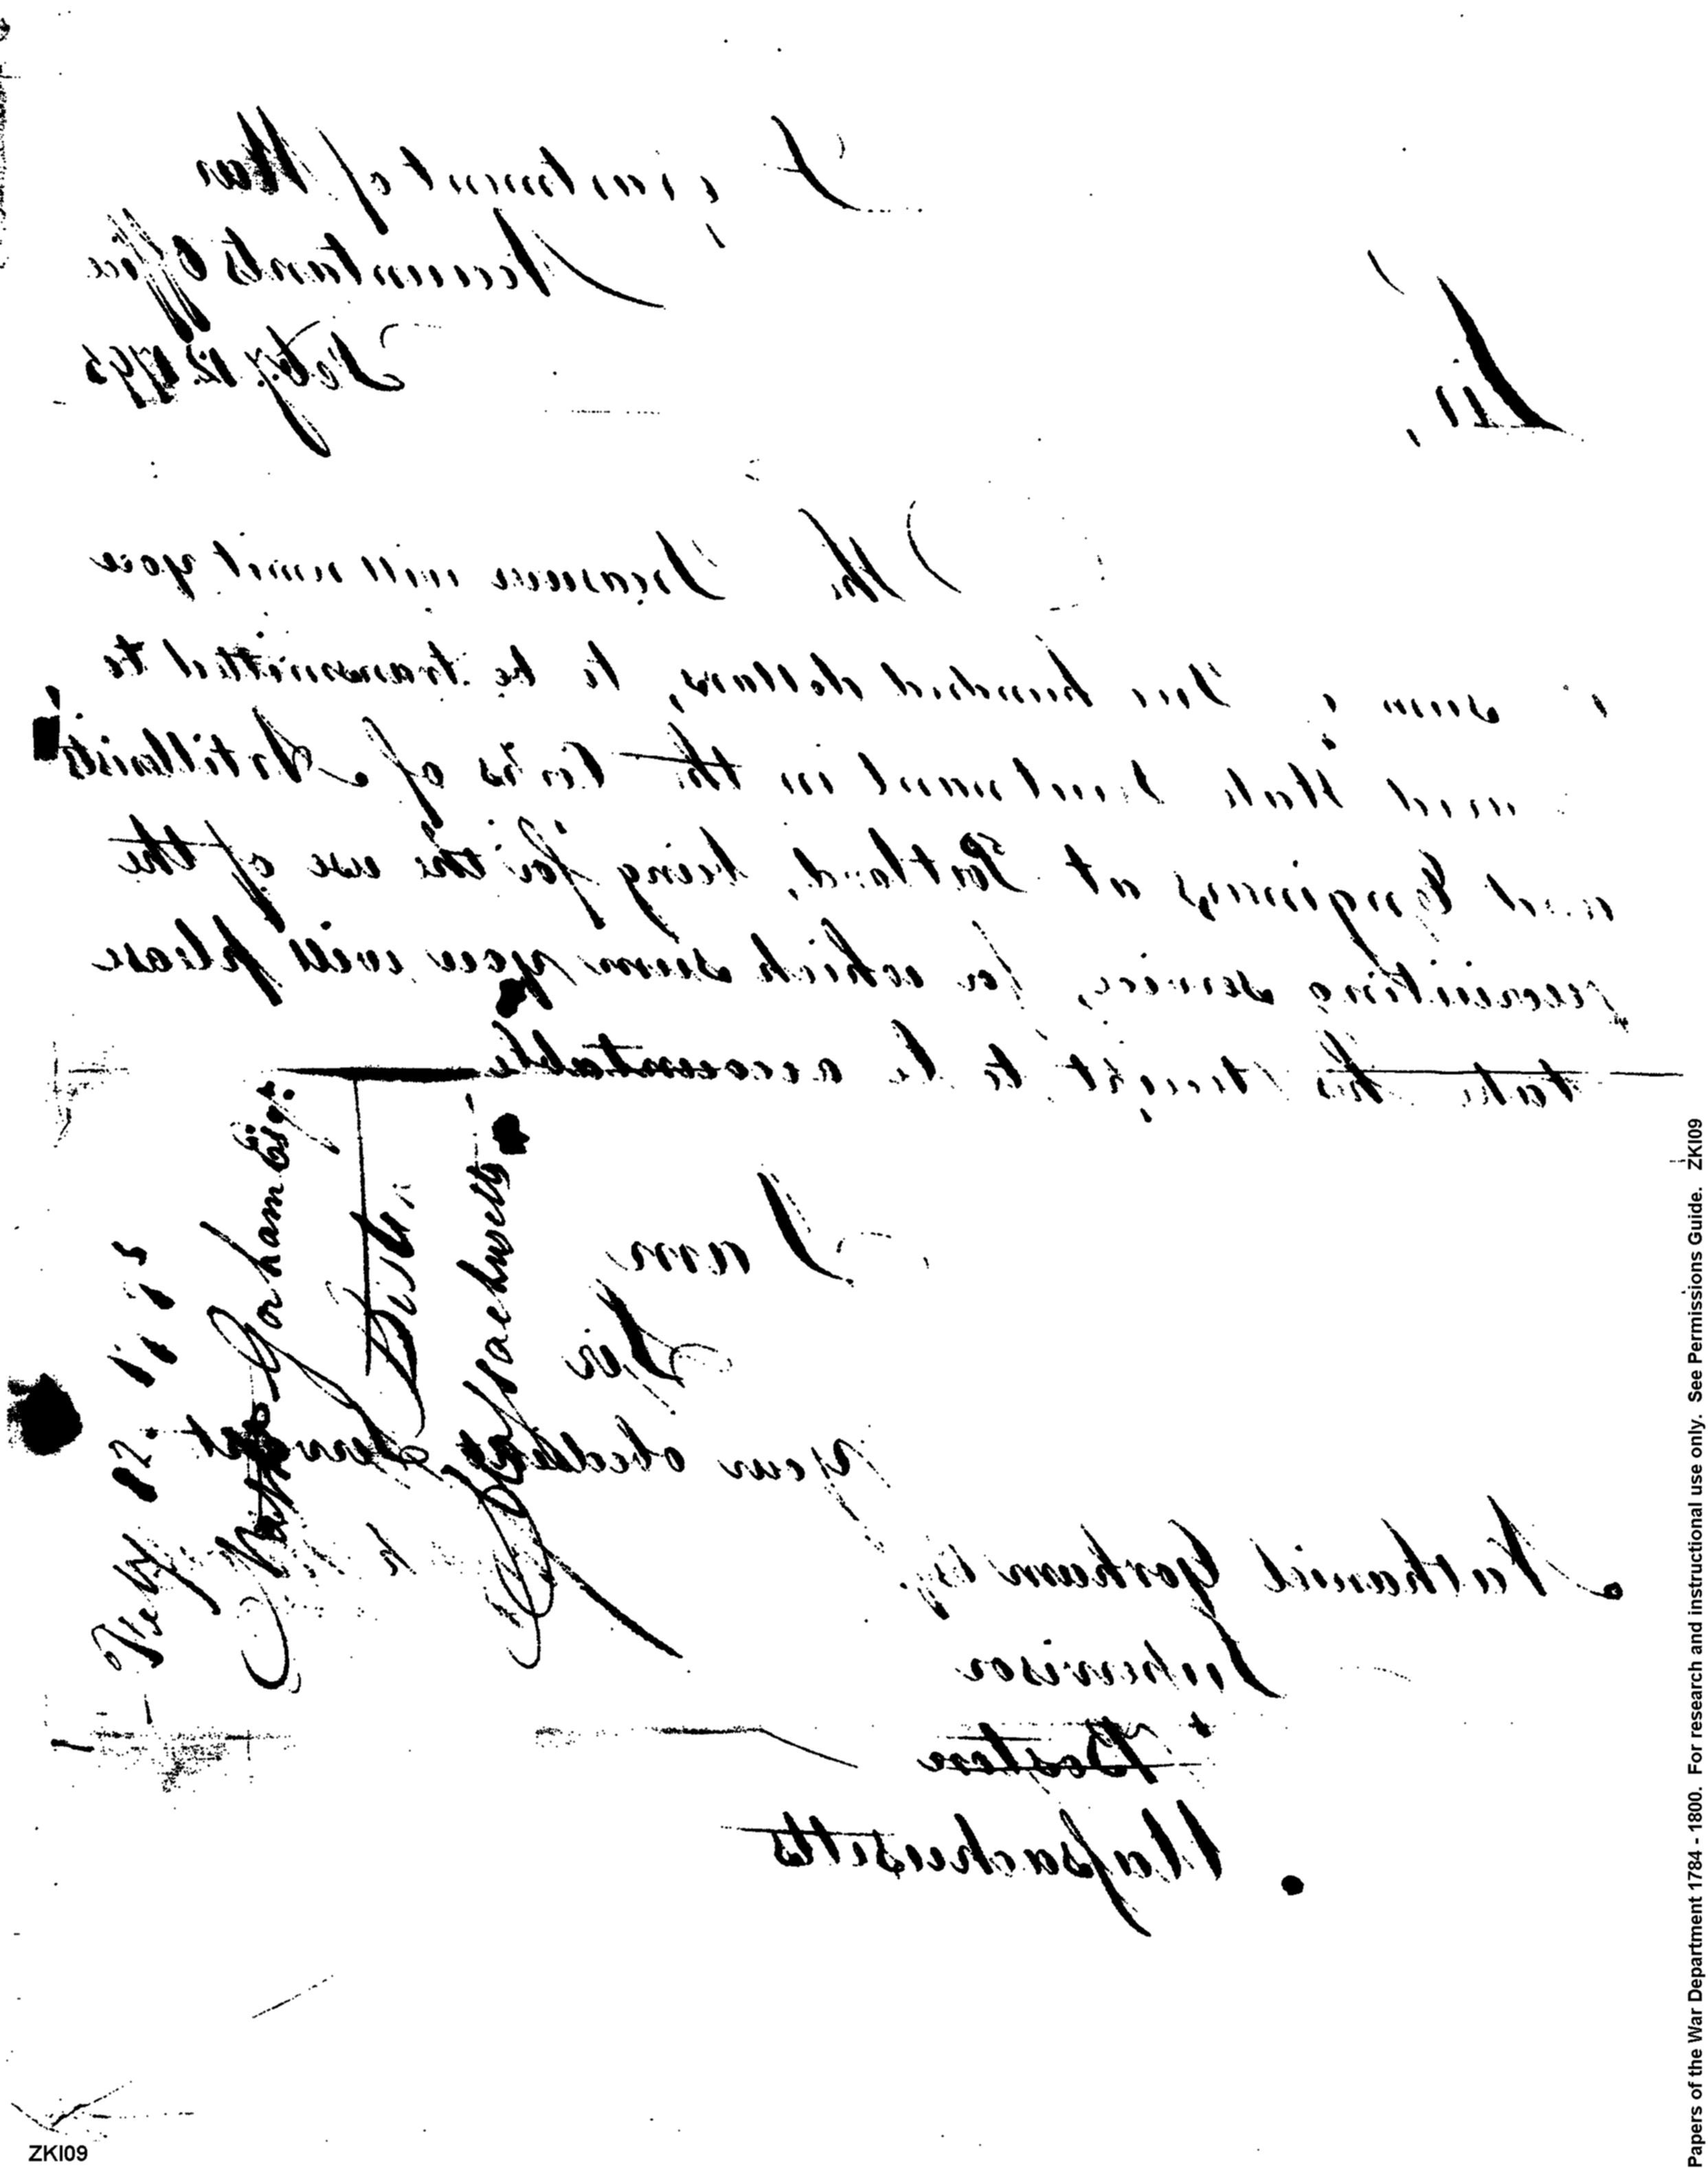 Department of War
Accountants Office
Feby. 12 1795
Sir,
The Treasurer will remit you
sum hundred dollars, to be transmitted to
in the Corps of Artillerists
and Engineers at Portland, being for the use of the
recruiting service, for which sum you will please
take his receipt to be accountable
I am
Sir
Your obedient Servant
Nathaniel Gorham Esq.
Supervisor
Boston
Massachusetts
Feby 12. 1795
Nath. Gorham Esqr.
Distt.
Massachusetts
ZKI09
Papers of the War Department 1784 - 1800. For research and instructional use only. See Permissions Guide. ZKI09